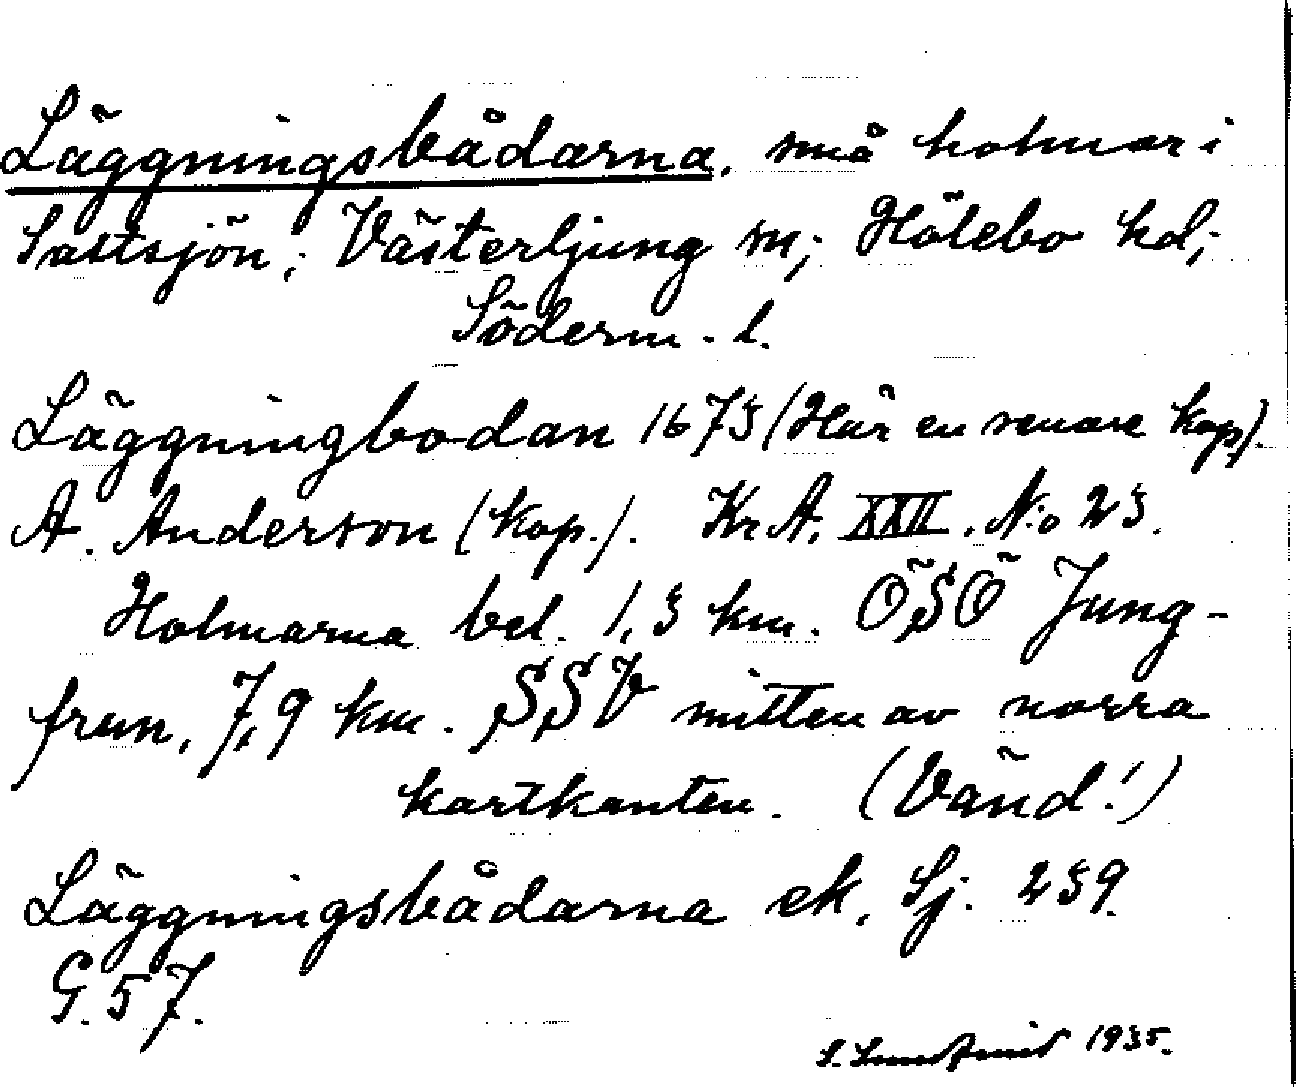 Läggningsbådarna, små holmar i
Saltsjön; Västerljung sn; Hölebo hd;
Söderm. l.
Läggningbodan 1673 (Här en senare kop).
A. Anderson (kop.). Kr A. XXII. N:o 23.
Holmarna bel. 1,3 km. ÖSÖ Jung-
frun, 7,9 km. SSV mitten av norra
kartkanten. (Vänd!)
Läggningsbådarna ek. Sj. 239.
G. 57.
S. Lundqvist 1935.